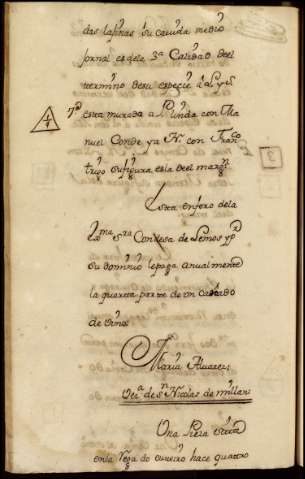 das lapinas su cavida medio
jornal es dela 3ª Calidad deel
termino desu especie i al p y s
7ª esta murada a P. linda con Ma
nuel Conde y a N. con Franco
trigo su figura esla deel margn
Esta en foro dela
Exma Sra Condesa de Lemos y pr
su dominio le paga anualmente
la quarta parte de un cañado
de vino
Maria Alvarez
Veza de Sn Nicolas de millan
Una Pieza
en la Vega do hace quattro